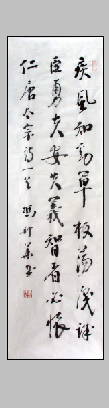 疾風知勁草板蕩識誠
臣勇夫安識義智者必懷
仁唐太宗詩一首馮書